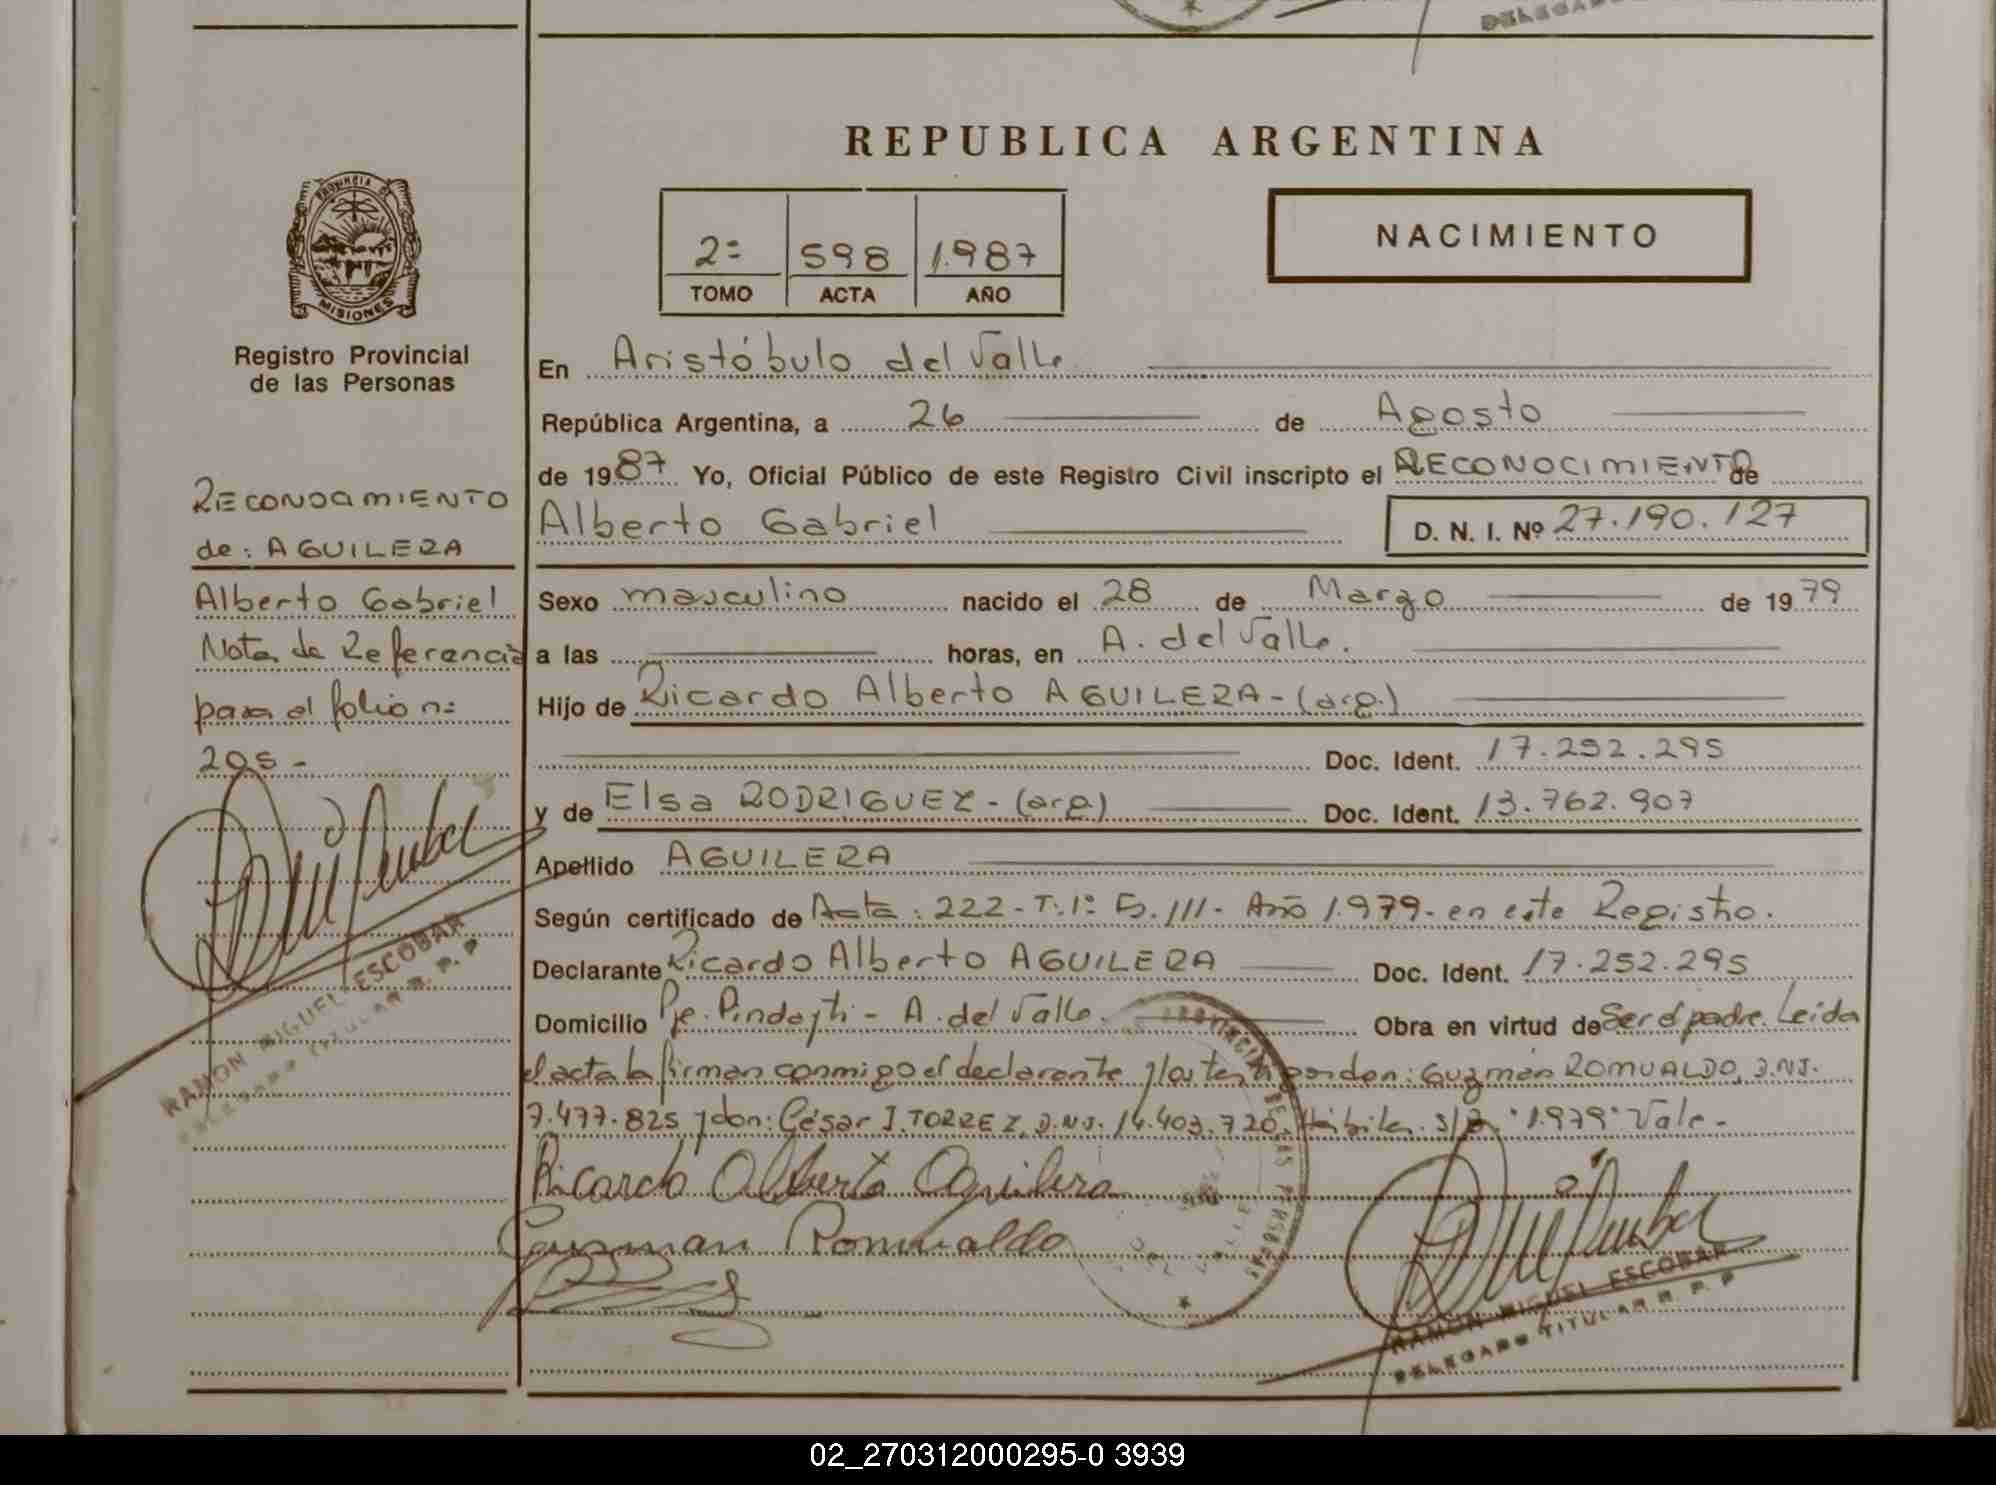 DELEGADO
REPUBLICA ARGENTINA
PROVINCIA DE
MISIONES
Registro Provincial
de las Personas
2º 598 1.987
TOMO ACTA AÑO
NACIMIENTO
En Aristóbulo del Valle
República Argentina, a 26 de Agosto
de 1987 Yo, Oficial Público de este Registro Civil inscripto el RECONOCIMIENTO de
Alberto Gabriel D. N. I. Nº 27.190.127
RECONOCIMIENTO
de: AGUILERA
Alberto Gabriel
Nota de Referencia
para el folio nº
205 -
RAMON MIGUEL ESCOBAR
DELEGADO TITULAR R. P. P
Sexo masculino nacido el 28 de Marzo de 1979
a las horas, en A. del Valle.
Hijo de Ricardo Alberto AGUILERA - (arg.)
Doc. Ident. 17.252.295
y de Elsa RODRIGUEZ - (arg.) Doc. Ident. 13.762.907
Apellido AGUILERA
Según certificado de Acta: 222 - T: 1º F. 111 - Año 1.979 - en este Registro.
Declarante Ricardo Alberto AGUILERA Doc. Ident. 17.252.295
Domicilio Pje. Pindayti - A. del Valle. Obra en virtud de Ser el padre. Leida
el acta la firman conmigo el declarante y los testigos don: Guzmán ROMUALDO, D.N.I.
7.477.825 y don: César I. TORREZ, D.N.I. 14.403.720. Hábiles. S/R: "1979" Vale -
Ricardo Alberto Aguilera
Guzman Romualdo
RAMON MIGUEL ESCOBAR
DELEGADO TITULAR R. P. P
02_270312000295-0 3939